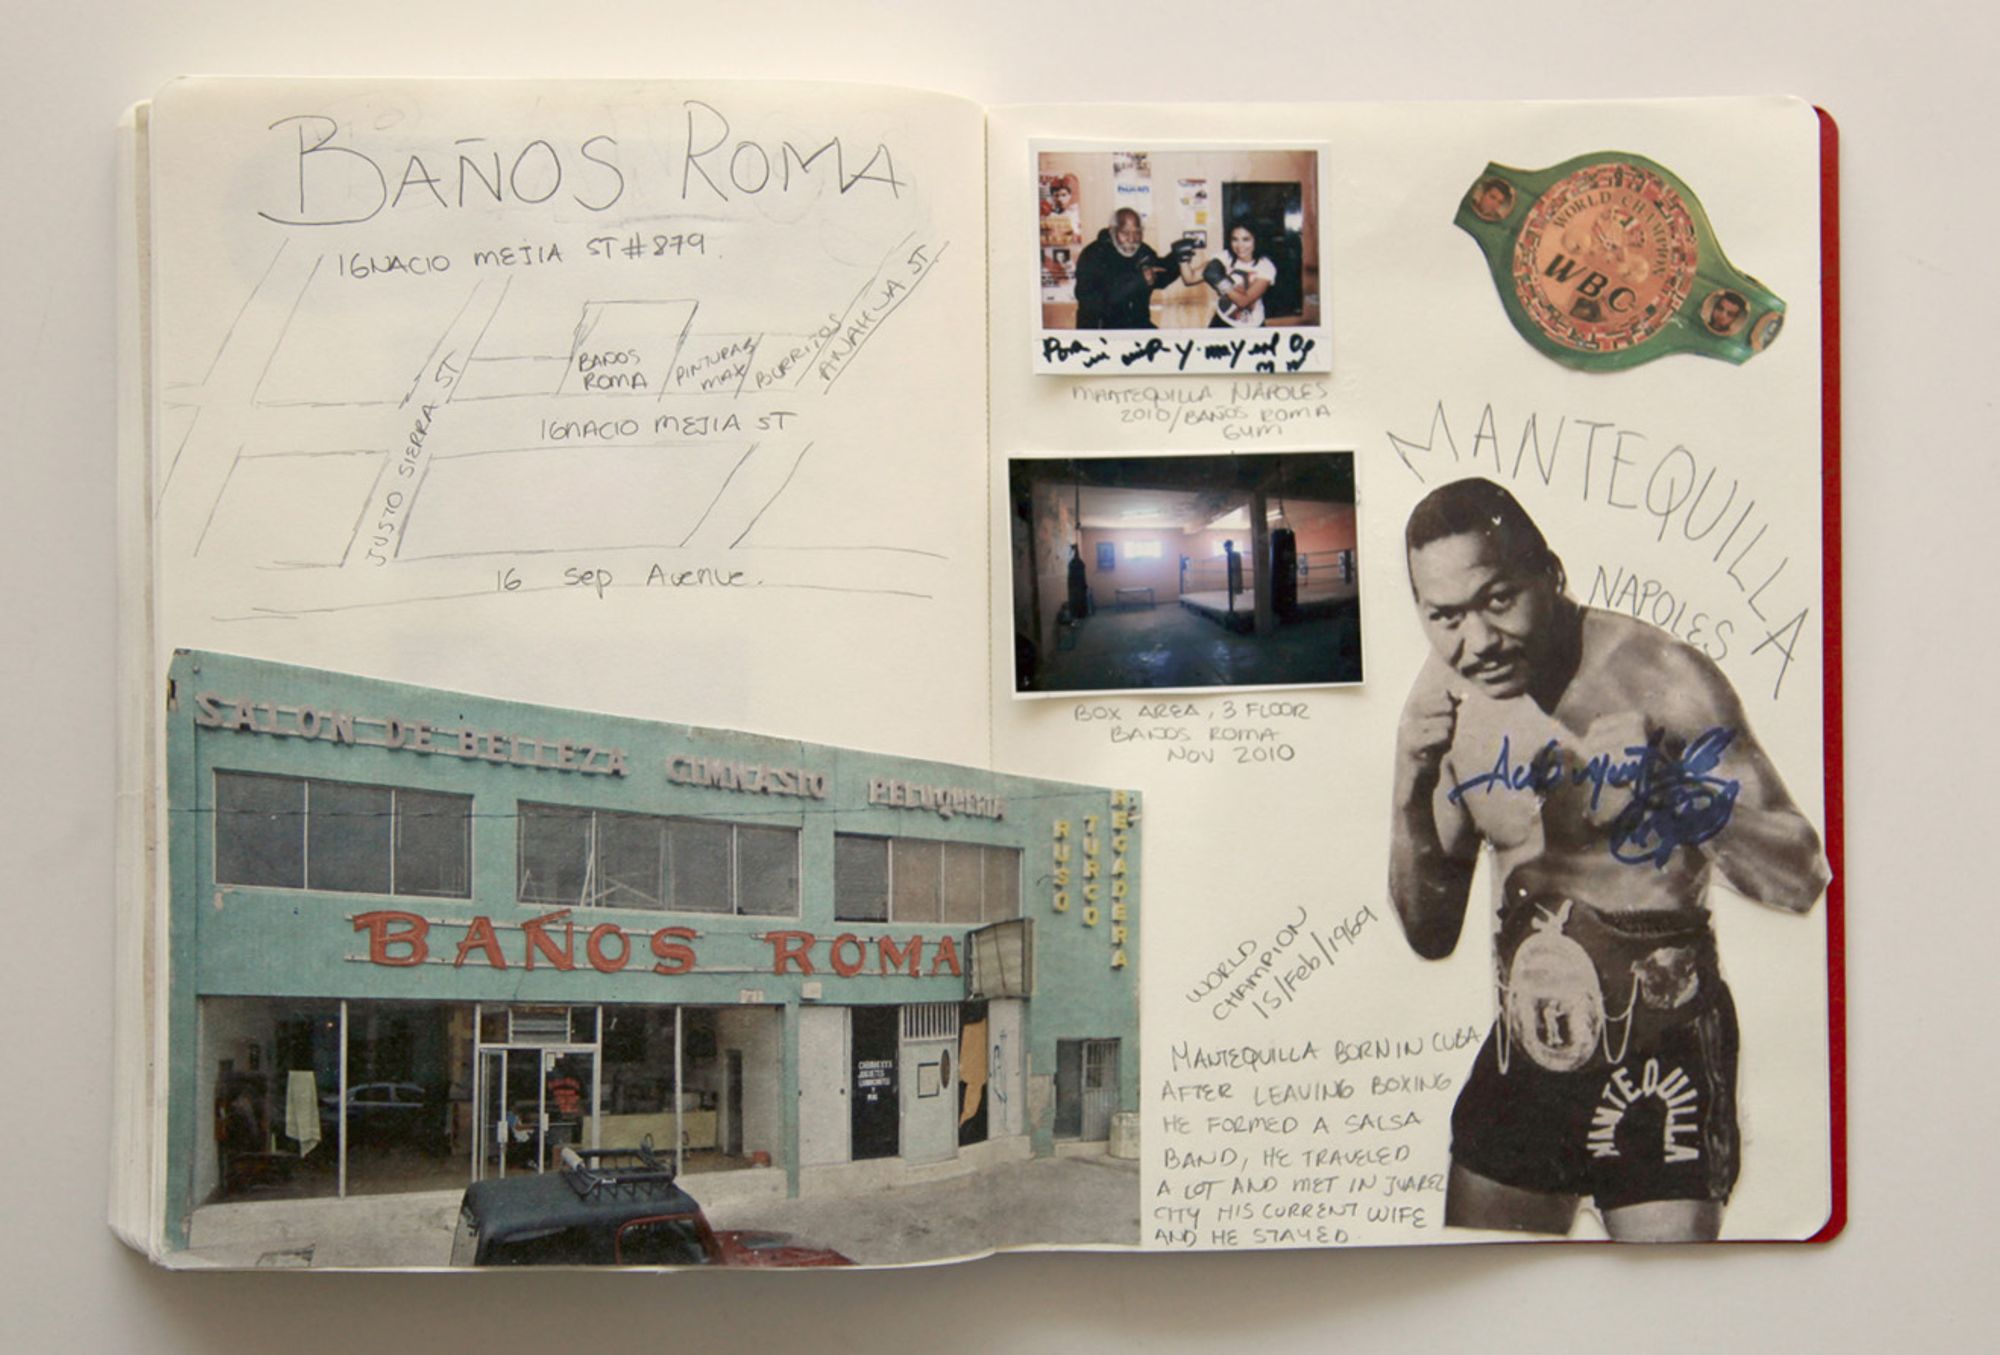 BAÑOS ROMA
IGNACIO MEJIA ST #879.
JUSTO SIERRA ST
BAÑOS
ROMA
PINTURAS
MAX
BURRITOS
ANAHUIA ST.
IGNACIO MEJIA ST
16 Sep Avenue.
SALON DE BELLEZA GIMNASIO PELUQUERIA
RUSO
TURCO
REGADERA
BAÑOS ROMA
MANTEQUILLA NAPOLES
2010/BAÑOS ROMA
GYM
BOX AREA, 3 FLOOR
BAÑOS ROMA
NOV 2010
WORLD CHAMPION
WBC
MANTEQUILLA
NAPOLES
WORLD
CHAMPION
15/Feb/1969
MANTEQUILLA BORN IN CUBA
AFTER LEAVING BOXING
HE FORMED A SALSA
BAND, HE TRAVELED
A LOT AND MET IN JUAREZ
CITY HIS CURRENT WIFE
AND HE STAYED.
MANTEQUILLA